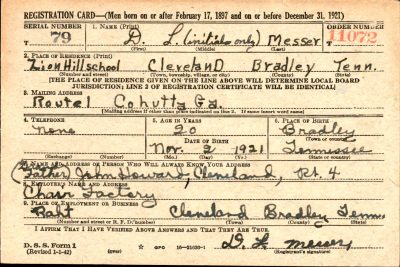 REGISTRATION CARD—(Men born on or after February 17, 1897 and on or before December 31, 1921)
SERIAL NUMBER 1. NAME (Print) ORDER NUMBER
79 D. L. (initials only) Messer 11072
(First) (Middle) (Last)
2. PLACE OF RESIDENCE (Print)
Zion Hill school Cleveland Bradley Tenn.
(Number and street) (Town, township, village, or city) (County) (State)
[THE PLACE OF RESIDENCE GIVEN ON THE LINE ABOVE WILL DETERMINE LOCAL BOARD
JURISDICTION; LINE 2 OF REGISTRATION CERTIFICATE WILL BE IDENTICAL]
3. MAILING ADDRESS
Route 1 Cohutta Ga.
[Mailing address if other than place indicated on line 2. If same insert word same]
4. TELEPHONE 5. AGE IN YEARS 6. PLACE OF BIRTH
None 20 Bradley
DATE OF BIRTH (Town or county)
Nov. 2 1921 Tennessee
(Exchange) (Number) (Mo.) (Day) (Yr.) (State or country)
7. NAME AND ADDRESS OF PERSON WHO WILL ALWAYS KNOW YOUR ADDRESS
(Father) John Howard, Cleveland, Rt. 4
8. EMPLOYER'S NAME AND ADDRESS
Chair Factory
9. PLACE OF EMPLOYMENT OR BUSINESS
Cleveland Bradley Tenn
(Number and street or R. F. D. number) (Town) (County) (State)
I AFFIRM THAT I HAVE VERIFIED ABOVE ANSWERS AND THAT THEY ARE TRUE.
D. S. S. Form 1
(Revised 1-1-42) (over) GPO 16—21630-1 D. L. Messer
(Registrant's signature)